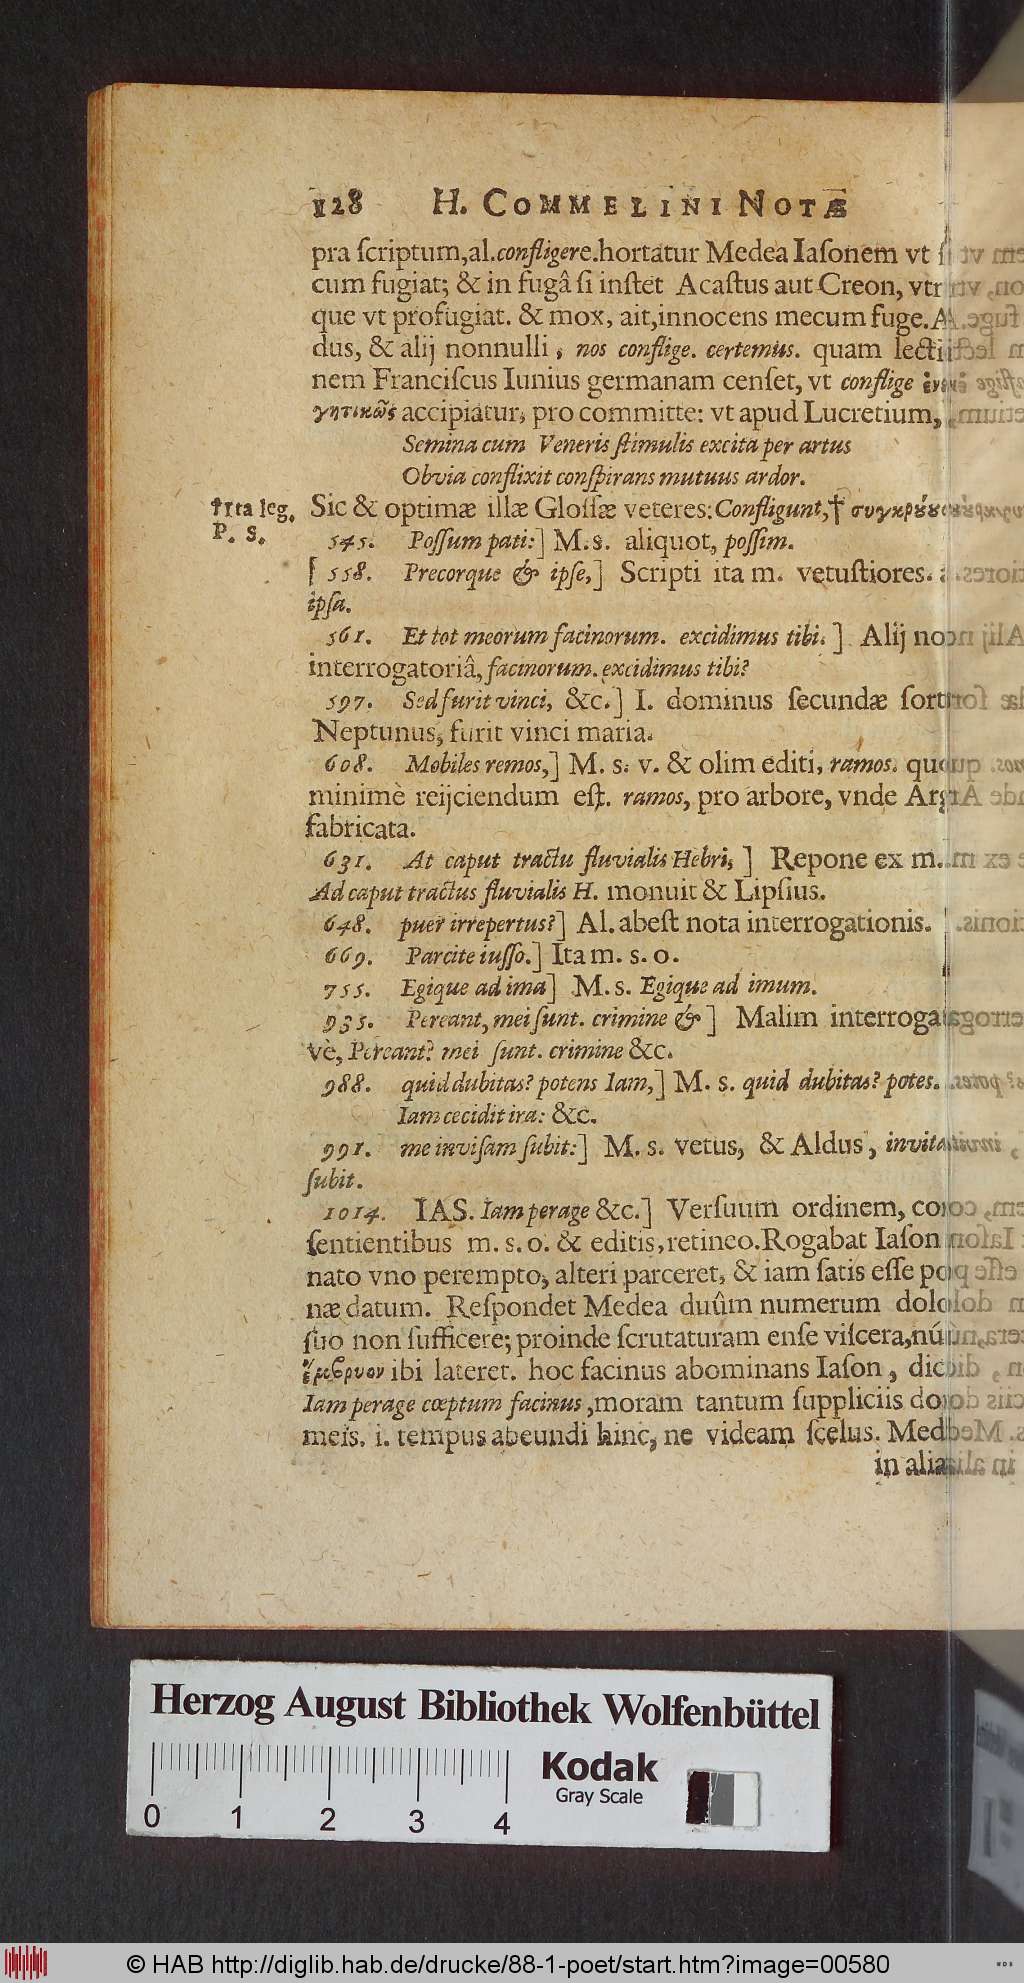 128 H. COMMELINI NOTÆ
pra ſcriptum, al. confligere. hortatur Medea Iaſonem vt ſ
cum fugiat; & in fugâ ſi inſtet Acaſtus aut Creon, vtr
que vt profugiat. & mox, ait, innocens mecum fuge. A
dus, & alij nonnulli, nos conflige. certemus. quam lecti
nem Franciſcus Iunius germanam cenſet, vt conflige
γητικῶς accipiatur, pro committe: vt apud Lucretium,
Semina cum Veneris ſtimulis excita per artus
Obvia conflixit conſpirans mutuus ardor.
†Ita leg.
P. S.
Sic & optimæ illæ Gloſſæ veteres: Confligunt, †
545. Poſſum pati:] M. s. aliquot, poſſim.
[ 558. Precorque & ipſe,] Scripti ita m. vetuſtiores.
ipſa.
561. Et tot meorum facinorum. excidimus tibi.] Alij no
interrogatoriâ, facinorum. excidimus tibi?
597. Sed furit vinci, &c.] I. dominus ſecundæ ſort
Neptunus, furit vinci maria.
608. Mobiles remos,] M. s. v. & olim editi, ramos. quo
minimè reijciendum eſt. ramos, pro arbore, vnde Ar
fabricata.
631. At caput tractu fluvialis Hebri,] Repone ex m.
Ad caput tractus fluvialis H. monuit & Lipſius.
648. puer irrepertus?] Al. abeſt nota interrogationis.
669. Parcite iuſſo.] Ita m. s. o.
755. Egique ad ima] M. s. Egique ad imum.
935. Pereant, mei ſunt. crimine &] Malim interroga
vè, Pereant? mei ſunt. crimine &c.
988. quid dubitas? potens Iam,] M. s. quid dubitas? potes.
Iam cecidit ira: &c.
991. me inviſam ſubit:] M. s. vetus, & Aldus, invita
ſubit.
1014. IAS. Iam perage &c.] Verſuum ordinem, co
ſentientibus m. s. o. & editis, retineo. Rogabat Iaſon
nato vno perempto, alteri parceret, & iam ſatis eſſe po
næ datum. Reſpondet Medea duûm numerum dolo
ſuo non ſufficere; proinde ſcrutaturam enſe viſcera, nú
ἔμβρυον ibi lateret. hoc facinus abominans Iaſon, dic
Iam perage cœptum facinus, moram tantum ſuppliciis do
meis. i. tempus abeundi hinc, ne videam ſcelus. Med
in alia
Herzog August Bibliothek Wolfenbüttel
Kodak
Gray Scale
0 1 2 3 4
© HAB http://diglib.hab.de/drucke/88-1-poet/start.htm?image=00580